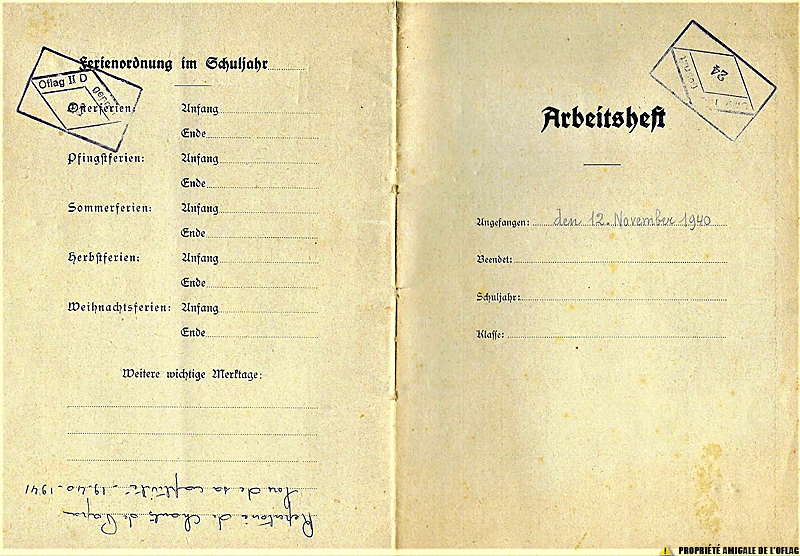 Ferienordnung im Schuljahr
Oflag II D
geprüft
Osterferien: Anfang
Ende
Pfingstferien: Anfang
Ende
Sommerferien: Anfang
Ende
Herbstferien: Anfang
Ende
Weihnachtsferien: Anfang
Ende
Weitere wichtige Merktage:
Repertoire de chants de Papa
lou de sa captivité - 1940-1941
24
Arbeitsheft
Angefangen: den 12. November 1940
Beendet:
Schuljahr:
Klasse:
PROPRIÉTÉ AMICALE DE L'OFLAG